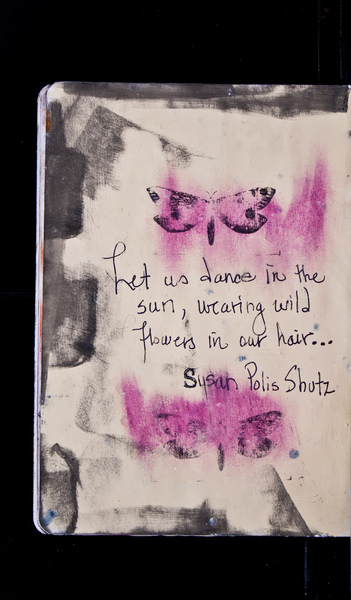 Let us dance in the
sun, wearing wild
flowers in our hair...
Susan Polis Shutz